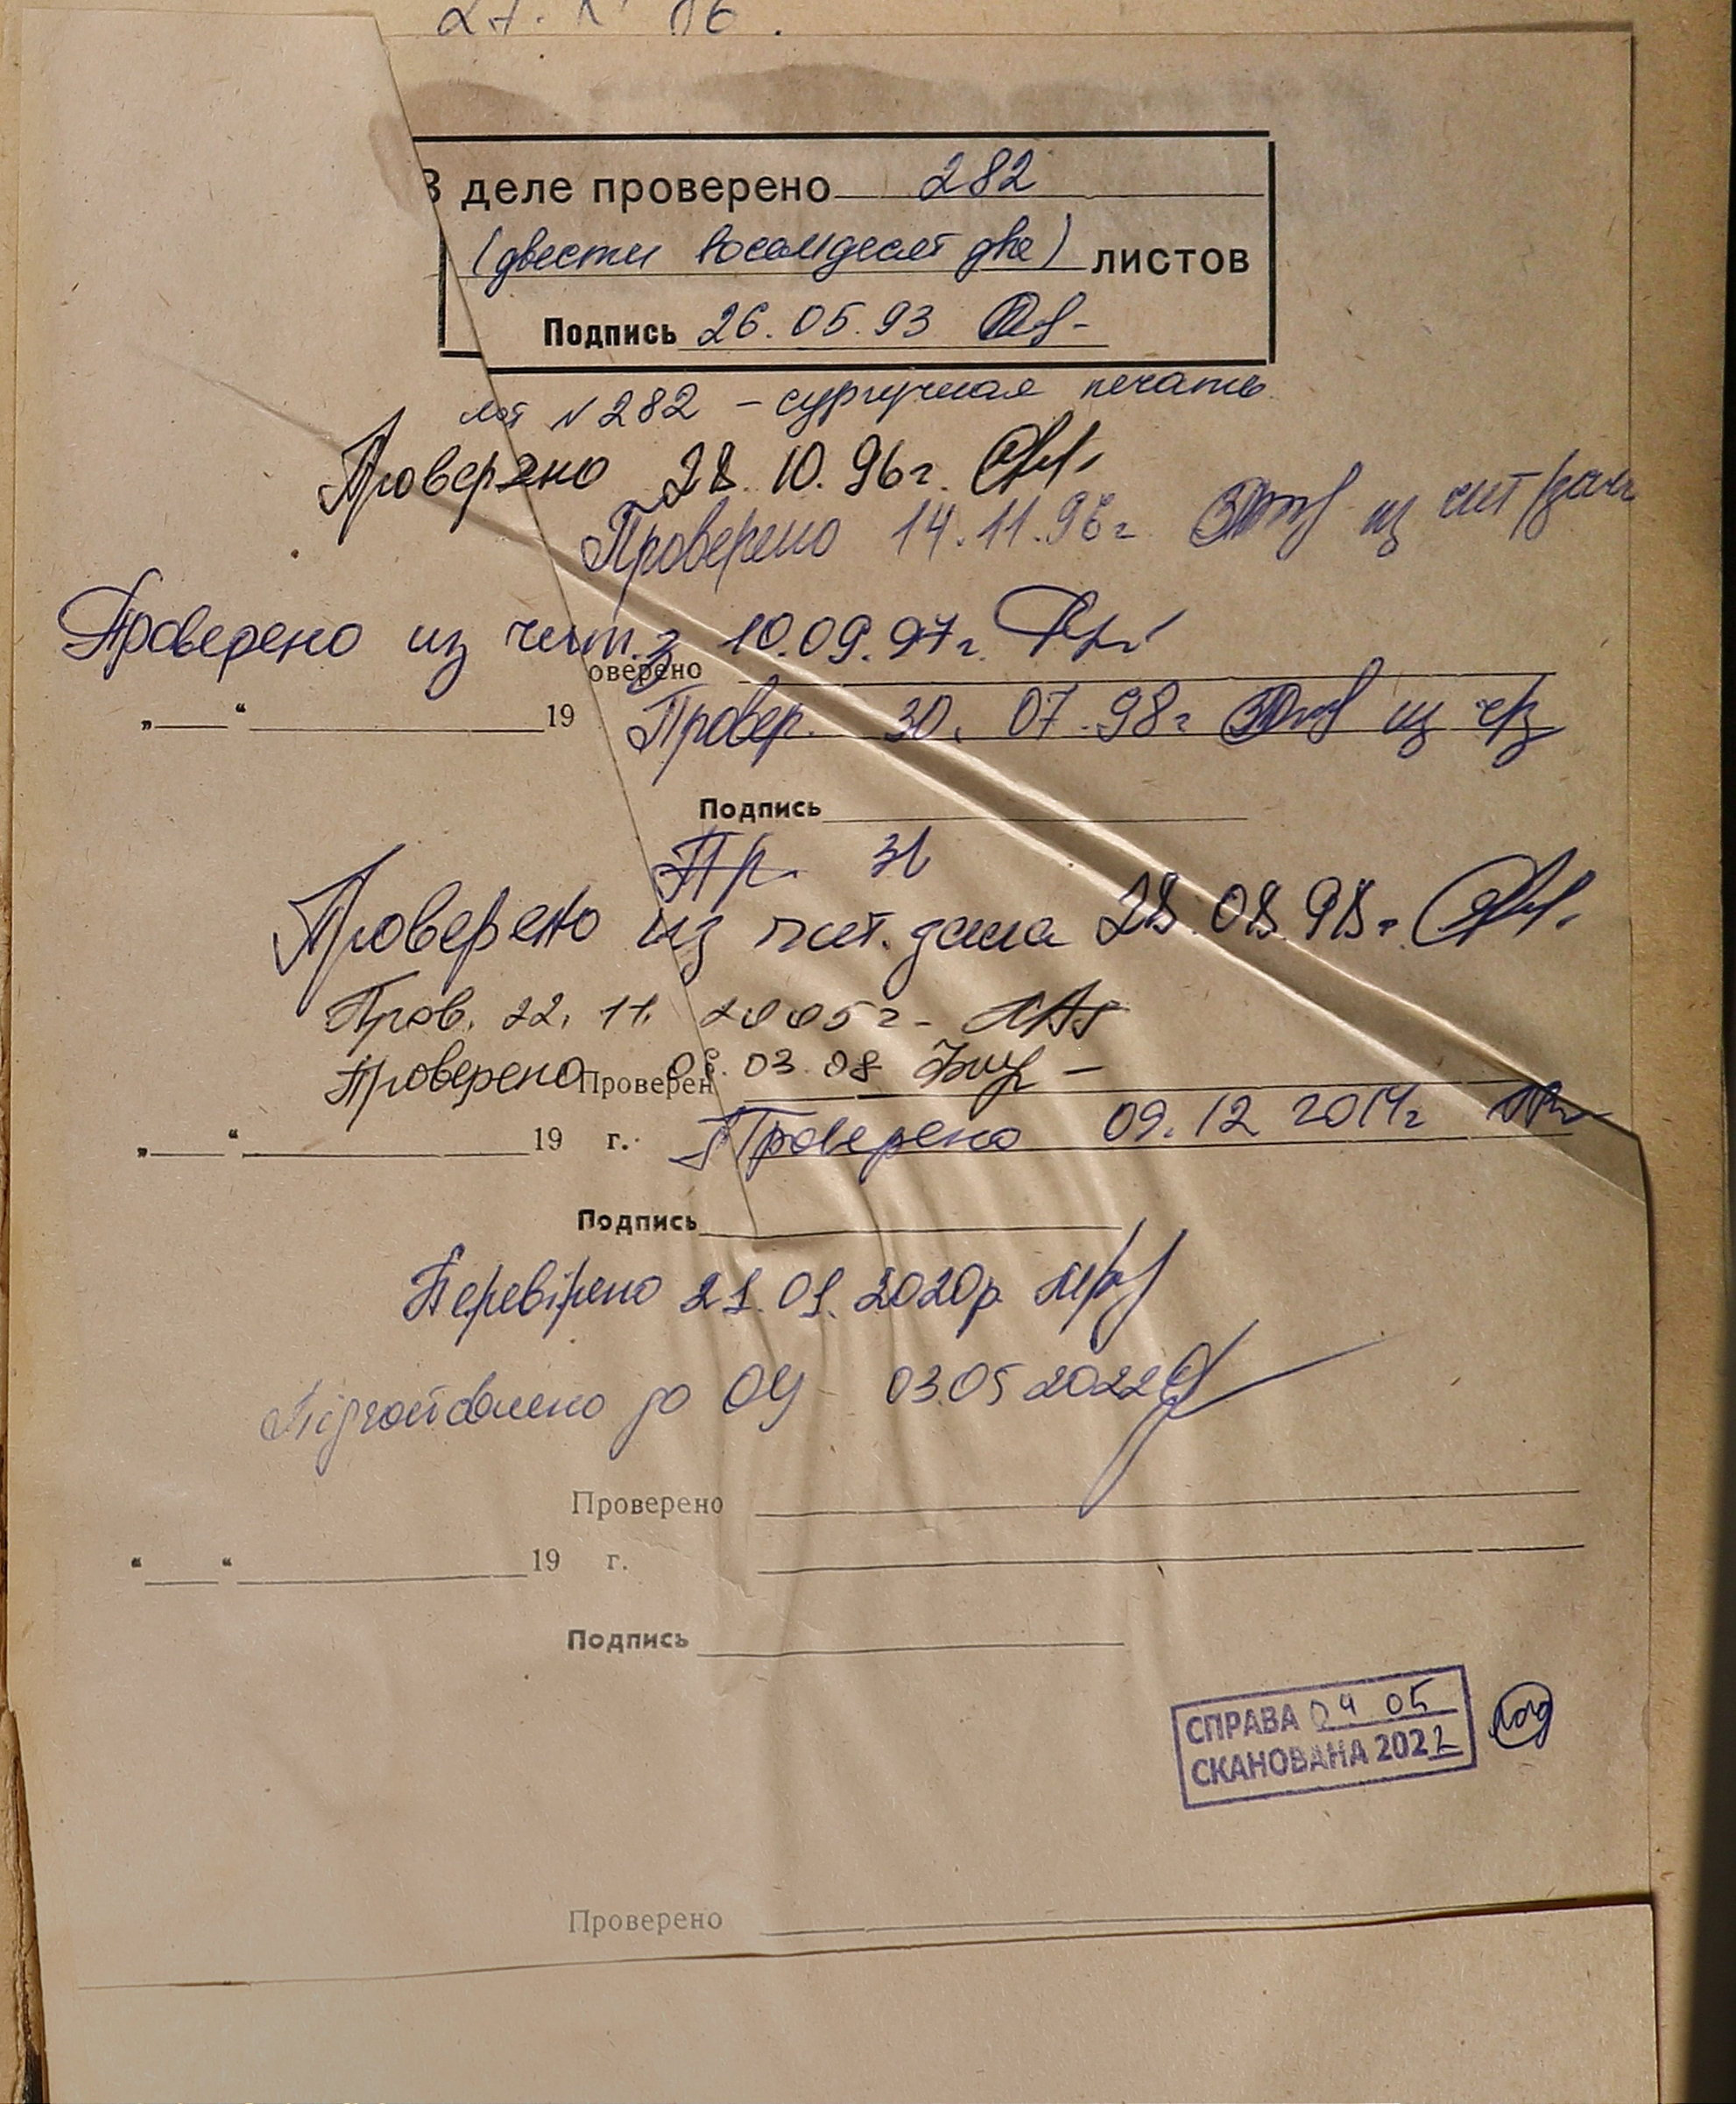 В деле проверено 282
(двести восемдесят два) листов
Подпись 26.05.93
лист №282 – сургучная печать
Проверено 28.10.96г.
Проверено 14.11.96г. из чит/зала
Проверено из чит.з 10.09.97г.
оверено
„ “ 19 Провер. 30. 07.98г из ч/з
Подпись
Пр. 31
Проверено из чит. зала 28.08.98г.
Пров. 22. 11. 2005г.
Проверено 06.03.08
Проверен
„ “ 19 г. Проверено 09.12 2014г
Подпись
Перевірено 21.01.2020р.
Підготовлено до ОЦ 03.05 2022
Проверено
“ “ 19 г.
Подпись
СПРАВА 04 05
СКАНОВАНА 2022
Проверено